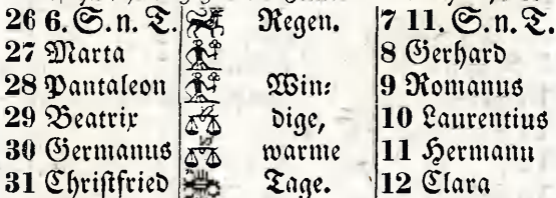 26 6. S. n. T. Regen. 7 11. S. n. T.
27 Marta 8 Gerhard
28 Pantaleon Win: 9 Romanus
29 Beatrix dige, 10 Laurentius
30 Germanus warme 11 Hermann
31 Christfried Tage. 12 Clara